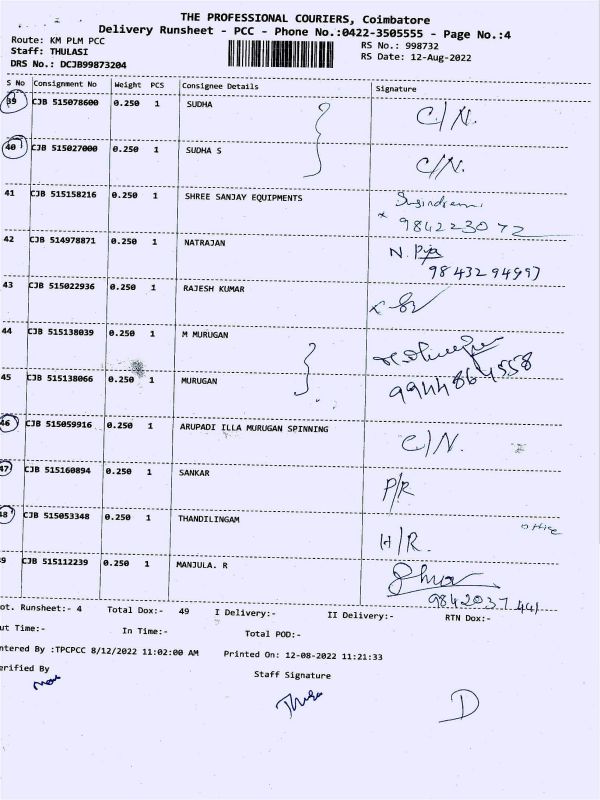 THE PROFESSIONAL COURIERS, Coimbatore
Delivery Runsheet - PCC - Phone No.:0422-3505555 - Page No.:4
Route: KM PLM PCC RS No.: 998732
Staff: THULASI RS Date: 12-Aug-2022
DRS No.: DCJB99873204
S No Consignment No Weight PCS Consignee Details Signature
39 CJB 515078600 0.250 1 SUDHA C/N.
40 CJB 515027000 0.250 1 SUDHA S C/N.
41 CJB 515158216 0.250 1 SHREE SANJAY EQUIPMENTS
x 984223072
42 CJB 514978871 0.250 1 NATRAJAN N.
9843294997
43 CJB 515022936 0.250 1 RAJESH KUMAR x
44 CJB 515138039 0.250 1 M MURUGAN
45 CJB 515138066 0.250 1 MURUGAN 9944864558
46 CJB 515059916 0.250 1 ARUPADI ILLA MURUGAN SPINNING C/N.
47 CJB 515160894 0.250 1 SANKAR P/R
48 CJB 515053348 0.250 1 THANDILINGAM office
H/R.
9 CJB 515112239 0.250 1 MANJULA. R
9842037441
ot. Runsheet:- 4 Total Dox:- 49 I Delivery:- II Delivery:- RTN Dox:-
ut Time:- In Time:- Total POD:-
ntered By :TPCPCC 8/12/2022 11:02:00 AM Printed On: 12-08-2022 11:21:33
erified By Staff Signature
D